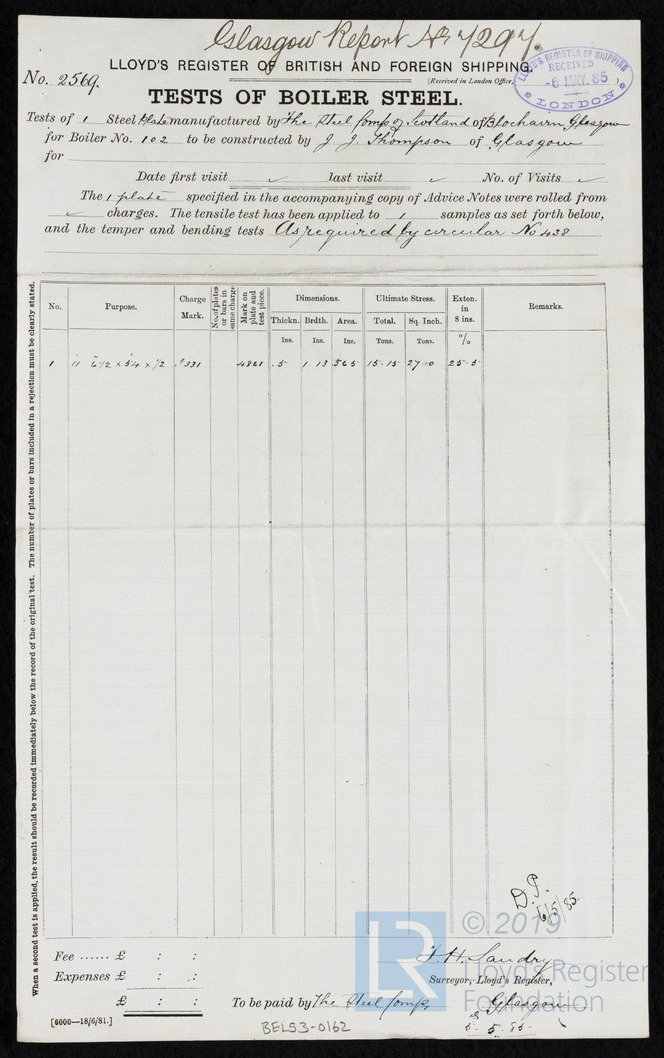 Glasgow Report No 7297.
LLOYD'S REGISTER OF BRITISH AND FOREIGN SHIPPING.
LLOYD'S REGISTER OF SHIPPING
RECEIVED
-6 MAY. 85
LONDON
No. 2569.
(Received in London Office, )
TESTS OF BOILER STEEL.
Tests of 1 Steel Plate manufactured by The Steel Comp of Scotland of Blochairn Glasgow
for Boiler No. 102 to be constructed by J. J. Thompson of Glasgow
for
Date first visit ✓ last visit ✓ No. of Visits ✓
The 1 plate specified in the accompanying copy of Advice Notes were rolled from
✓ charges. The tensile test has been applied to 1 samples as set forth below,
and the temper and bending tests As required by circular No 438
No. Purpose. Charge Mark. No. of plates or bars in same charge Mark on plate and test piece. Dimensions. Ultimate Stress. Exten. in 8 ins. Remarks.
Thickn. Brdth. Area. Total. Sq. Inch.
Ins. Ins. Ins. Tons. Tons. %
1 11 6½ × 5 4 × ½ 331 4861 .5 1.13 .565 15.15 27.0 25.5
When a second test is applied, the result should be recorded immediately below the record of the original test. The number of plates or bars included in a rejection must be clearly stated.
D.P.
6/5/85.
© 2019
LR
Lloyd's Register
Foundation
Fee ...... £ : :
Expenses £ : :
£ : :
J. H. Sandry
Surveyor, Lloyd's Register,
To be paid by The Steel Comp,
Glasgow
5. 5. 85.
[6000—18/6/81.]
BEL53-0162